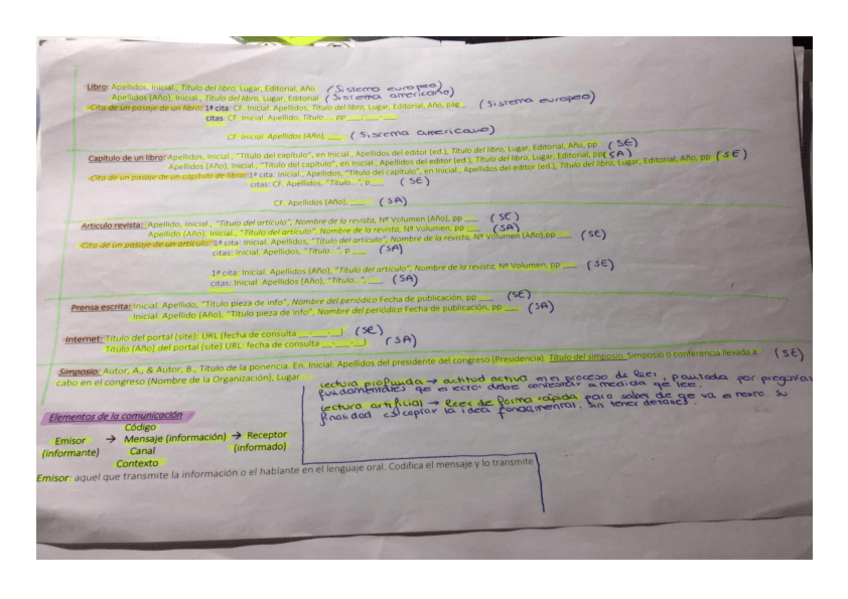 Libro: Apellidos, Inicial., Título del libro, Lugar, Editorial, Año (Sistema europeo)
Apellidos (Año), Inicial., Título del libro, Lugar, Editorial (Sistema americano)
-Cita de un pasaje de un libro: 1ª cita: CF. Inicial. Apellidos, Título del libro, Lugar, Editorial, Año, pág _ (Sistema europeo)
citas: CF. Inicial. Apellido, Título ... pp ___
CF. Inicial. Apellidos (Año), ___ (Sistema americano)
Capítulo de un libro: Apellidos, Inicial., "Título del capítulo", en Inicial., Apellidos del editor (ed.), Título del libro, Lugar, Editorial, Año, pp (SE)
Apellidos (Año), Inicial., "Título del capítulo", en Inicial., Apellidos del editor (ed.), Título del libro, Lugar, Editorial, pp (SA)
-Cita de un pasaje de un capítulo de libro: 1ª cita: Inicial., Apellidos, "Título del capítulo", en Inicial., Apellidos del editor (ed.), Título del libro, Lugar, Editorial, Año, pp (SE)
citas: CF. Apellidos, "Título...", p___ (SE)
CF. Apellidos (Año), ___ (SA)
Artículo revista: Apellido, Inicial., "Título del artículo", Nombre de la revista, Nº Volumen (Año), pp ___ (SE)
Apellido (Año), Inicial., "Título del artículo", Nombre de la revista, Nº Volumen, pp ___ (SA)
-Cita de un pasaje de un artículo: 1ª cita: Inicial. Apellidos, "Título del artículo", Nombre de la revista, Nº Volumen (Año), pp ___ (SE)
citas: Inicial. Apellidos, "Título...", p ___ (SA)
1ª cita: Inicial. Apellidos (Año), "Título del artículo", Nombre de la revista, Nº Volumen, pp ___ (SE)
citas: Inicial. Apellidos (Año), "Título...", ___ (SA)
Prensa escrita: Inicial. Apellido, "Título pieza de info", Nombre del periódico Fecha de publicación, pp ___ (SE)
Inicial. Apellido (Año), "Título pieza de info", Nombre del periódico Fecha de publicación, pp ___ (SA)
Internet: Título del portal (site): URL (fecha de consulta __-__-__) (SE)
Título (Año) del portal (site) URL: fecha de consulta __-__-__) (SA)
Simposio: Autor, A., & Autor, B., Título de la ponencia. En. Inicial. Apellidos del presidente del congreso (Presidencia). Título del simposio. Simposio o conferencia llevada a (SE)
cabo en el congreso (Nombre de la Organización), Lugar
Lectura profunda → actitud activa en el proceso de leer, pautada por preguntas
fundamentales que el lector debe contestar a medida que lee.
Lectura artificial → leer de forma rápida para saber de qe va el texto. Su
finalidad es captar la idea fundamental, sin tener detalles.
Elementos de la comunicación
Código
Emisor → Mensaje (información) → Receptor
(informante) Canal (informado)
Contexto
Emisor: aquel que transmite la información o el hablante en el lenguaje oral. Codifica el mensaje y lo transmite